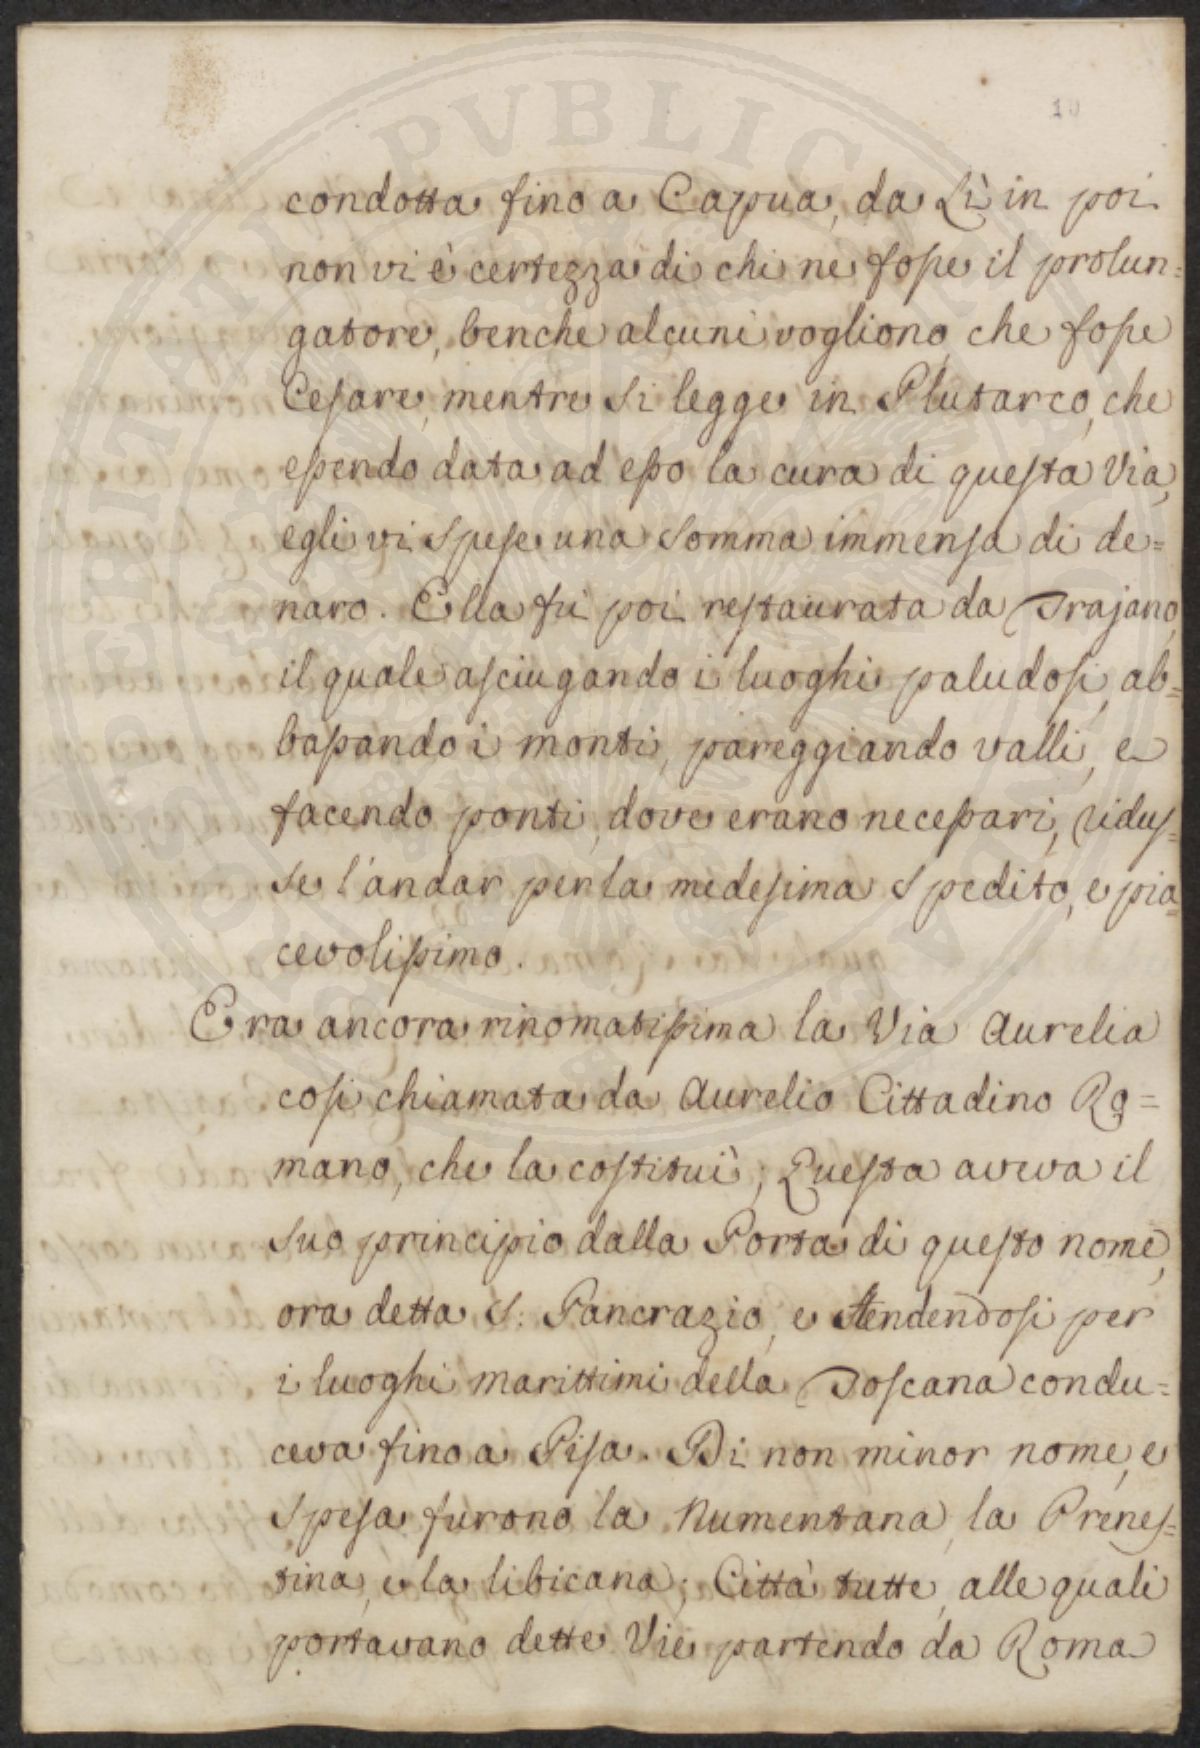 10
condotta fino a Capua, da Lì in poi
non vi è certezza di chi ne fosse il prolun=
gatore, benche alcuni vogliono, che fosse
Cesare, mentre si legge in Plutarco, che
essendo data ad esso la cura di questa Via,
egli vi spese una somma immensa di de=
naro. Ella fù poi restaurata da Trajano,
il quale asciugando i luoghi paludosi, ab=
bassando i monti, pareggiando valli, e
facendo ponti, dove erano necessari, ridus=
se l'andar per la medesima spedito, e pia=
cevolissimo.
Era ancora rinomatissima la Via Aurelia
così chiamata da Aurelio Cittadino Ro=
mano, che la costituì; Questa aveva il
suo principio dalla Porta di questo nome,
ora detta S. Pancrazio, e stendendosi per
i luoghi marittimi della Toscana condu=
ceva fino a Pisa. Di non minor nome, e
spesa furono la Numentana, la Prenes=
tina, e la libicana; Città tutte, alle quali
portavano dette Vie partendo da Roma